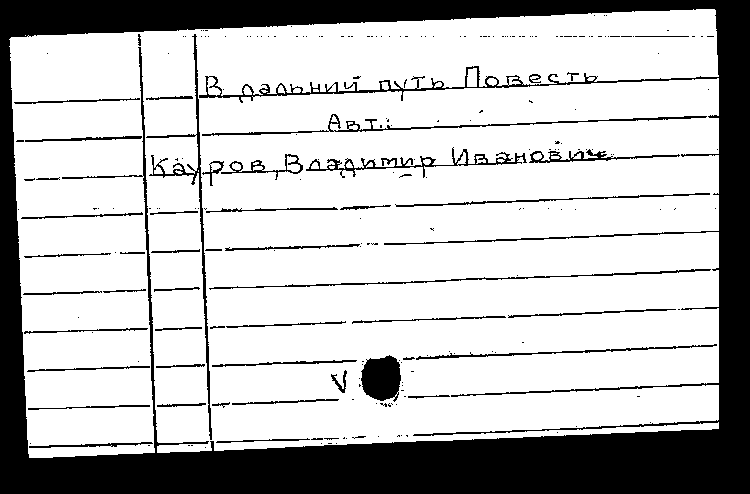 В дальний путь Повесть
Авт.:
Кауров, Владимир Иванович
V